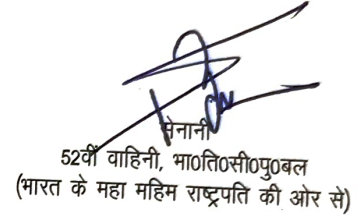 सेनानी
52वीं वाहिनी, भा0ति0सी0पु0बल
(भारत के महा महिम राष्ट्रपति की ओर से)